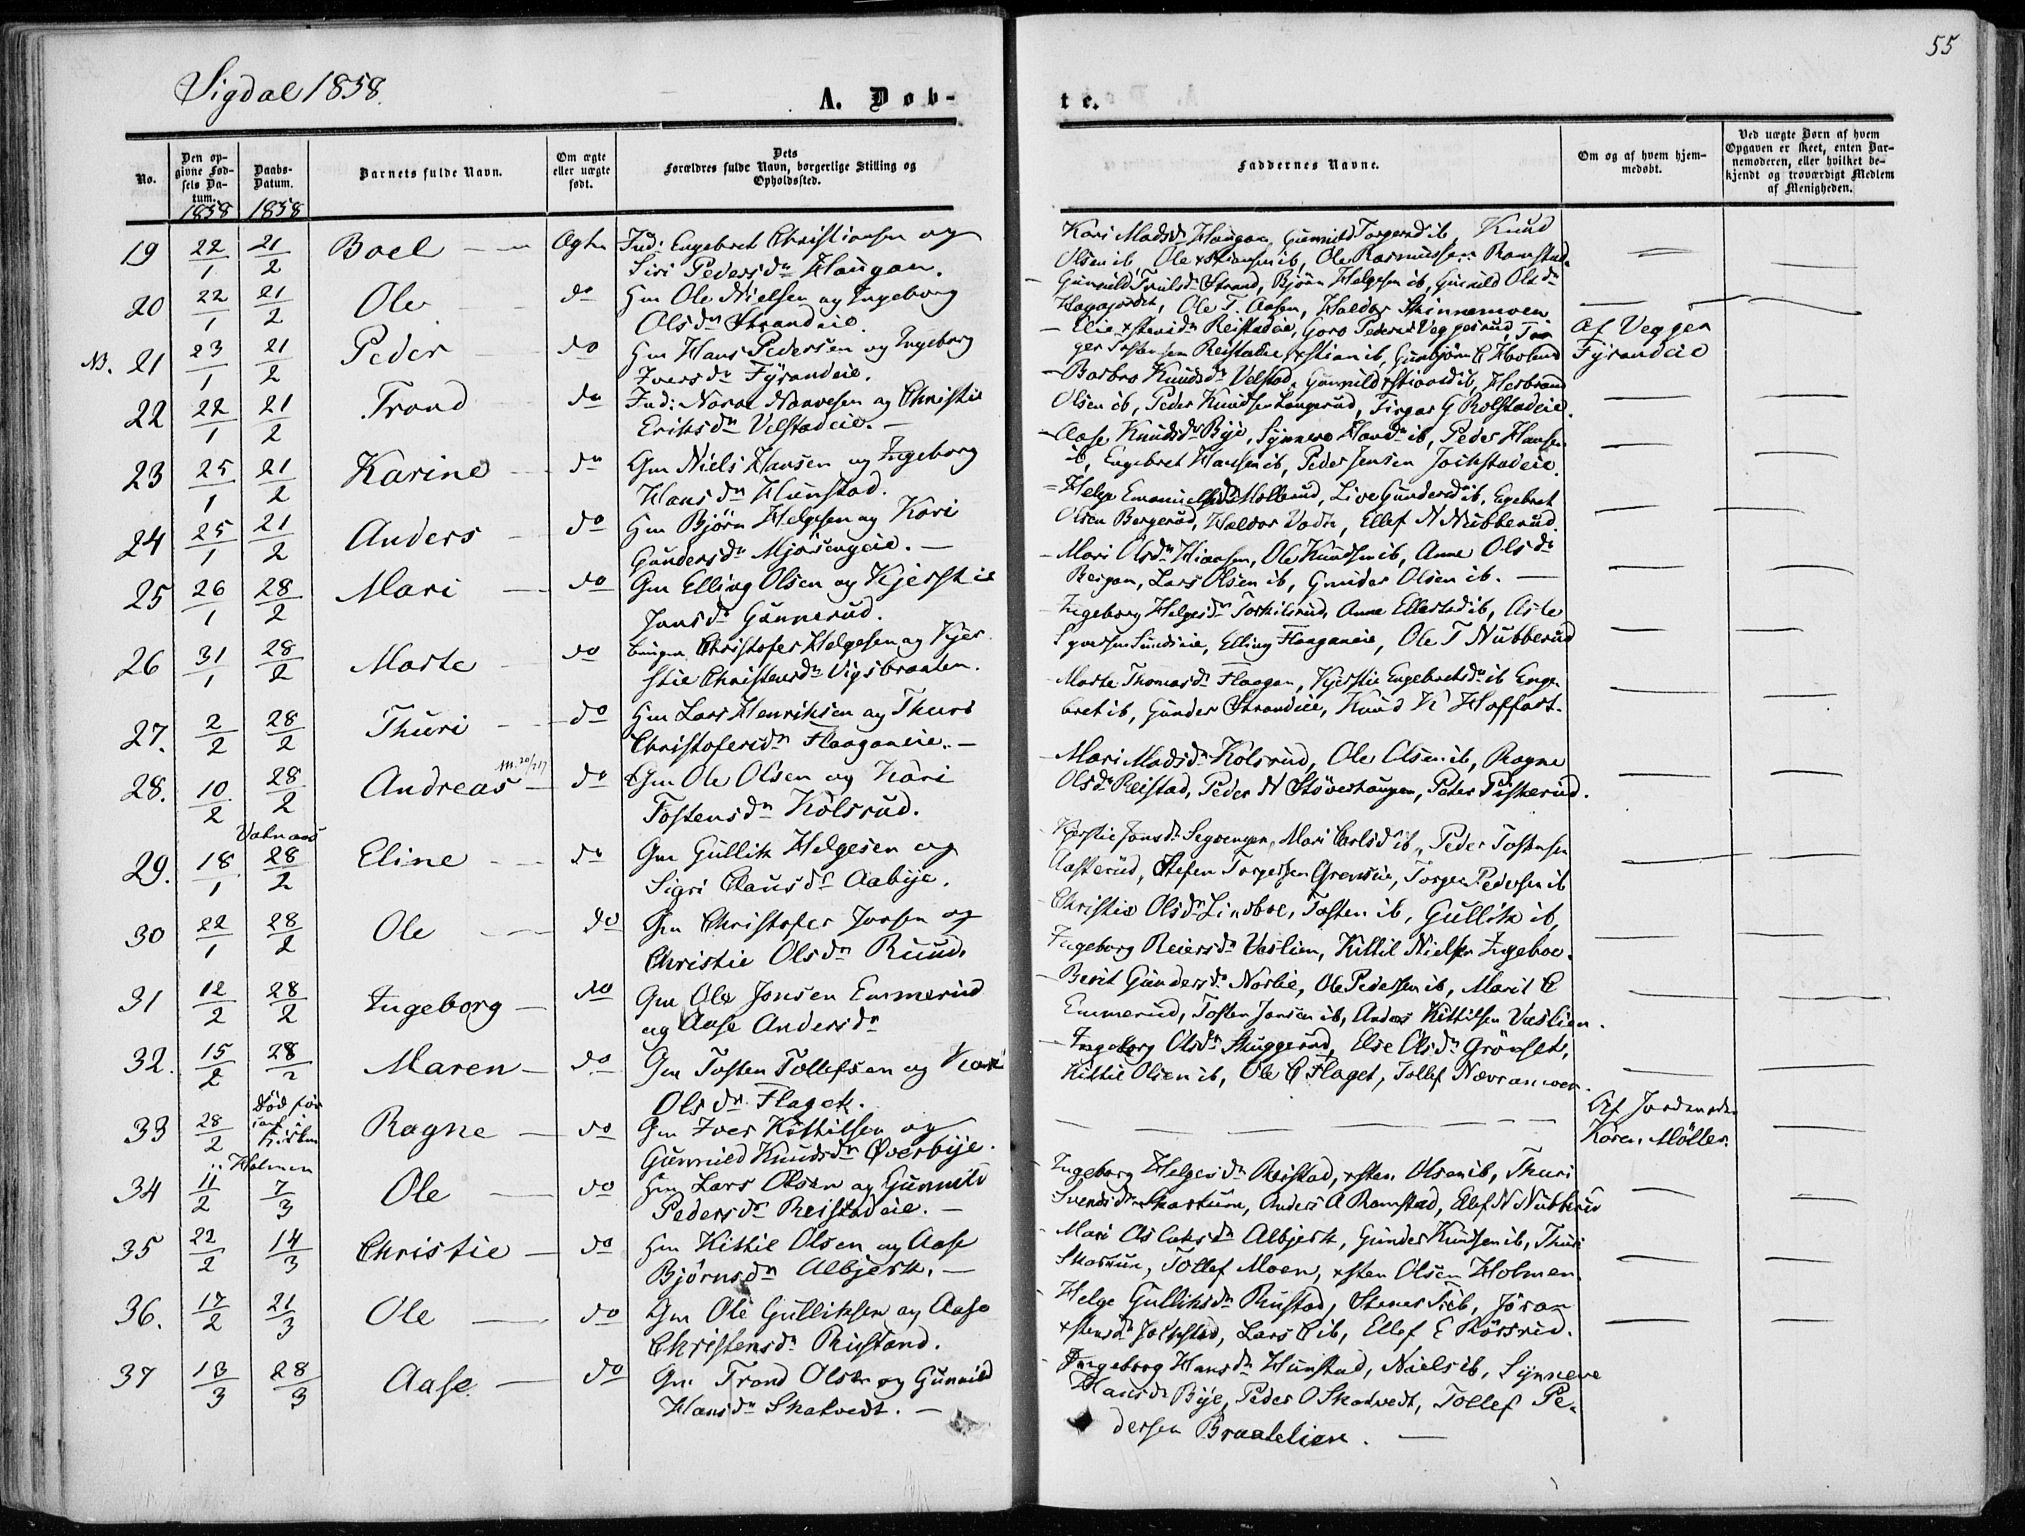 55
Sigdal 1858.
A. Døb-
te.
No.
Den opgivne Fødsels Datum.
1858
Daabs-Datum.
1858
Barnets fulde Navn.
Om ægte eller uægte født.
Dets Forældres fulde Navn, borgerlige Stilling og Opholdssted.
Faddernes Navne.
Om og af hvem hjemmedøbt.
Ved uægte Børn af hvem Opgaven er skeet, enten Barnemoderen, eller hvilket bekjendt og troværdigt Medlem af Menigheden.
19 22/1 21/2 Boel Ægte Ind: Engebret Christiansen og
Siri Pedersdn Haugan.
Kari Madsdn Haugan, Gunnild Torgersd ib, Knud
Olsen ib, Ole xstiansen ib, Ole Rasmussen Ramstad.
20 22/1 21/2 Ole do Gm Ole Nielsen og Ingeborg
Olsdn Strandeie.
Gunnild Truلsdn Strand, Bjørn Helgesen ib, Gunild Olsdn
Hagajordet, Ole T. Aasen, Haldor Skinnemoen
NB. 21 23/1 21/2 Peder do Gm Hans Pedersen og Ingeborg
Iversdn Fyrandeie.
Reistadeie, Goro Pedersd Veggesrud, Tor
ger Tostensen Reistadeie, xstian ib, Gunbjørn
Af Vegger
Fyrandeie
22 22/1 21/2 Trond do Ind: Narve Narvesen og Christie
Eriksdn Velstadeie.
Barbro Knudsdn Velstad, Gunnild xstiansd ib, Herbrand
Olsen ib, Peder Knudsen Langerud, G Rolstadeie.
23 25/1 21/2 Karine do Gm Niels Hansen og Ingeborg
Hansdn Hunstad.
Aase Knudsdn Bye, Synneve Hansdn ib, Peder Hansen
ib, Engebret Hansen ib, Peder Jensen
24 25/1 21/2 Anders do Gm Bjørn Helgesen og Kari
Gundersdn Mjøsengeie.
Helge Live Gundersd ib, Engebret
Olsen Bergerud, Haldor Vadn, Ellef N Nubberud.
25 26/1 28/2 Mari do Gm Elling Olsen og Kjerstie
Jonsdn Gunnerud.
Mari Olsdn Ole Knudsen ib, Anne Olsdn
Bergan, Lars Olsen ib, Gunder Olsen ib.
26 31/1 28/2 Marte do Christofer Helgesen og Kjer
stie Christensdn Vigsbraaten.
Ingeborg Helgesdn Torkilsrud, Anne Ellefsd ib, Asle
Elling Flaaganeie, Ole T Nubberud
27. 2/2 28/2 Thuri do Gm Lars Henriksen og Thuri
Christofersdn Flaaganeie.
Marte Thomasdn Flaagan, Kjerstie Engebretsdn ib Enge
bret ib, Gunder Strandeie, Knud K Hoffart.
28. 10/2 28/2 Andreas do Gm Ole Olsen og Kari
Tostensdn Kolsrud.
Mari Madsdn Kolsrud, Ole Olsen ib, Ragne
Olsdn Reistad, Peder N Støvershaugen, Peter Fiskerud.
Vatnaas
29. 18/1 28/2 Eline do Gm Gullik Helgesen og
Sigri Clausdn Aabye.
Kjerstie Jonsdn Mari Carlsd ib, Peder Tostensen
Aasterud, Stefen Torgersen Torger Pedersen ib
30 22/1 28/2 Ole do Gm Christofer Joesen og
Christie Olsdn Ruud.
Christie Olsdn Lindboe, Tosten ib, Gullik ib,
Ingeborg Reiersdn Vaslien, Kittil Nielsen Ingeboe.
31 12/2 28/2 Ingeborg do Gm Ole Jonsen Emmerud
og Aase Andersdn
Berit Gundersdn Norlie, Ole Pedersen ib, Marit C
Emmerud, Tosten Jonsen ib, Anders Kittilsen Vaslien.
32. 15/2 28/2 Maren do Gm Tosten Tollefsen og Kari
Olsdn Flaget.
Ingeborg Olsdn Skuggerud, Else Olsdn Grønset,
Kittil Olsen ib, Ole C Flaget, Tollef Nævramoen.
33 28/2 Død før
Kirken
Ragne do Gm Iver Kittilsen og
Gunnild Knudsdn Øverbye.
Af Jordemoder
Karen Møller.
Holmen
34 11/2 7/3 Ole do Gm Lars Olsen og Gunnild
Pedersdn Reistadeie.
Ingeborg Helgesdn Reistad, xsten Olsen ib, Thuri
Svendsdn Skartum, Anders A Ramstad, Ellef N Nubberud
35 22/2 14/3 Christie do Gm Kittil Olsen og Aase
Bjørnsdn Albjerk.
Mari Aslaksdn Albjerk, Gunder Knudsen ib, Thuri
Skartum, Tollef Moen, xsten Olsen Holmen.
36. 17/2 21/3 Ole do Gm Ole Gulliksen og Aase
Christensdn Rustand.
Helge Gulliksdn Rustad, Stener ib, Jøran
xstensdn Lars C ib, Ellef E
37 13/3 28/3 Aase do Gm Trond Olsen og Gunnild
Hansdn Skatvedt.
Ingeborg Hansdn Hunstad, Niels ib, Synneve
Hansdn Bye, Peder O Skatvedt, Tollef Pe-
dersen Braatelien.